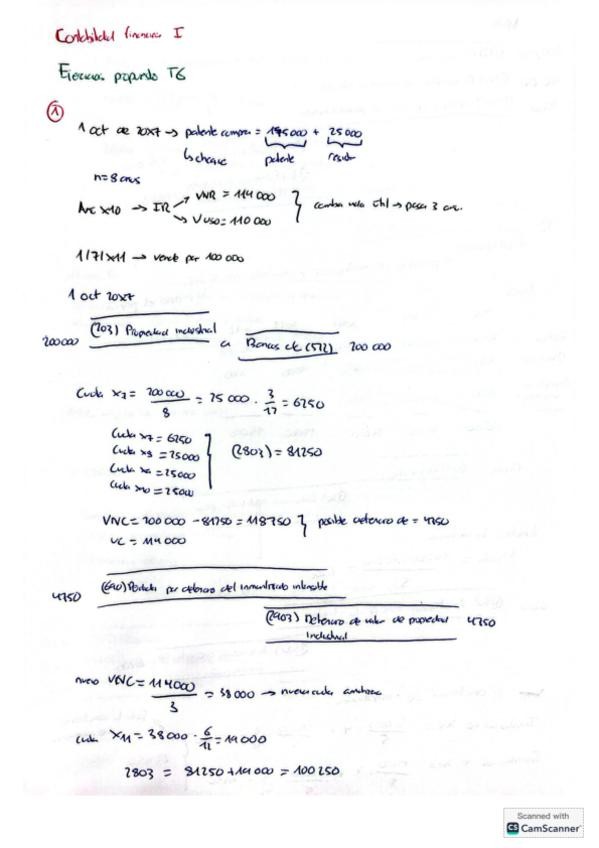 Contabilidad financiera I
Ejercicios propuestos T6
1
1 oct de 20x7 → patente compra = 175000 + 25000
↳ cheque patente
n=8 años
Dic x10 → IR → VNR = 114 000
→ V uso = 110 000
cambia vida útil → pasa 3
1/7/x11 → vende por 100 000
1 oct 20x7
200000 (203) Propiedad industrial
a Bancos c/c (572) 200 000
Cuota x7 = 200 000 / 8 = 25 000 · 3/12 = 6250
Cuota x7 = 6250
Cuota x8 = 25000
Cuota x9 = 25000
Cuota x10 = 25000
(2803) = 81250
VNC = 200 000 - 81250 = 118750
VC = 114 000
posible deterioro de = 4750
4750 (690) Pérdida por deterioro del inmovilizado intangible
(2903) Deterioro de valor de propiedad 4750
industrial
nuevo VNC = 114000 / 3 = 38 000 → nueva cuota
cuota x11 = 38000 · 6/12 = 19 000
2803 = 81250 + 19 000 = 100 250
Scanned with
CS CamScanner